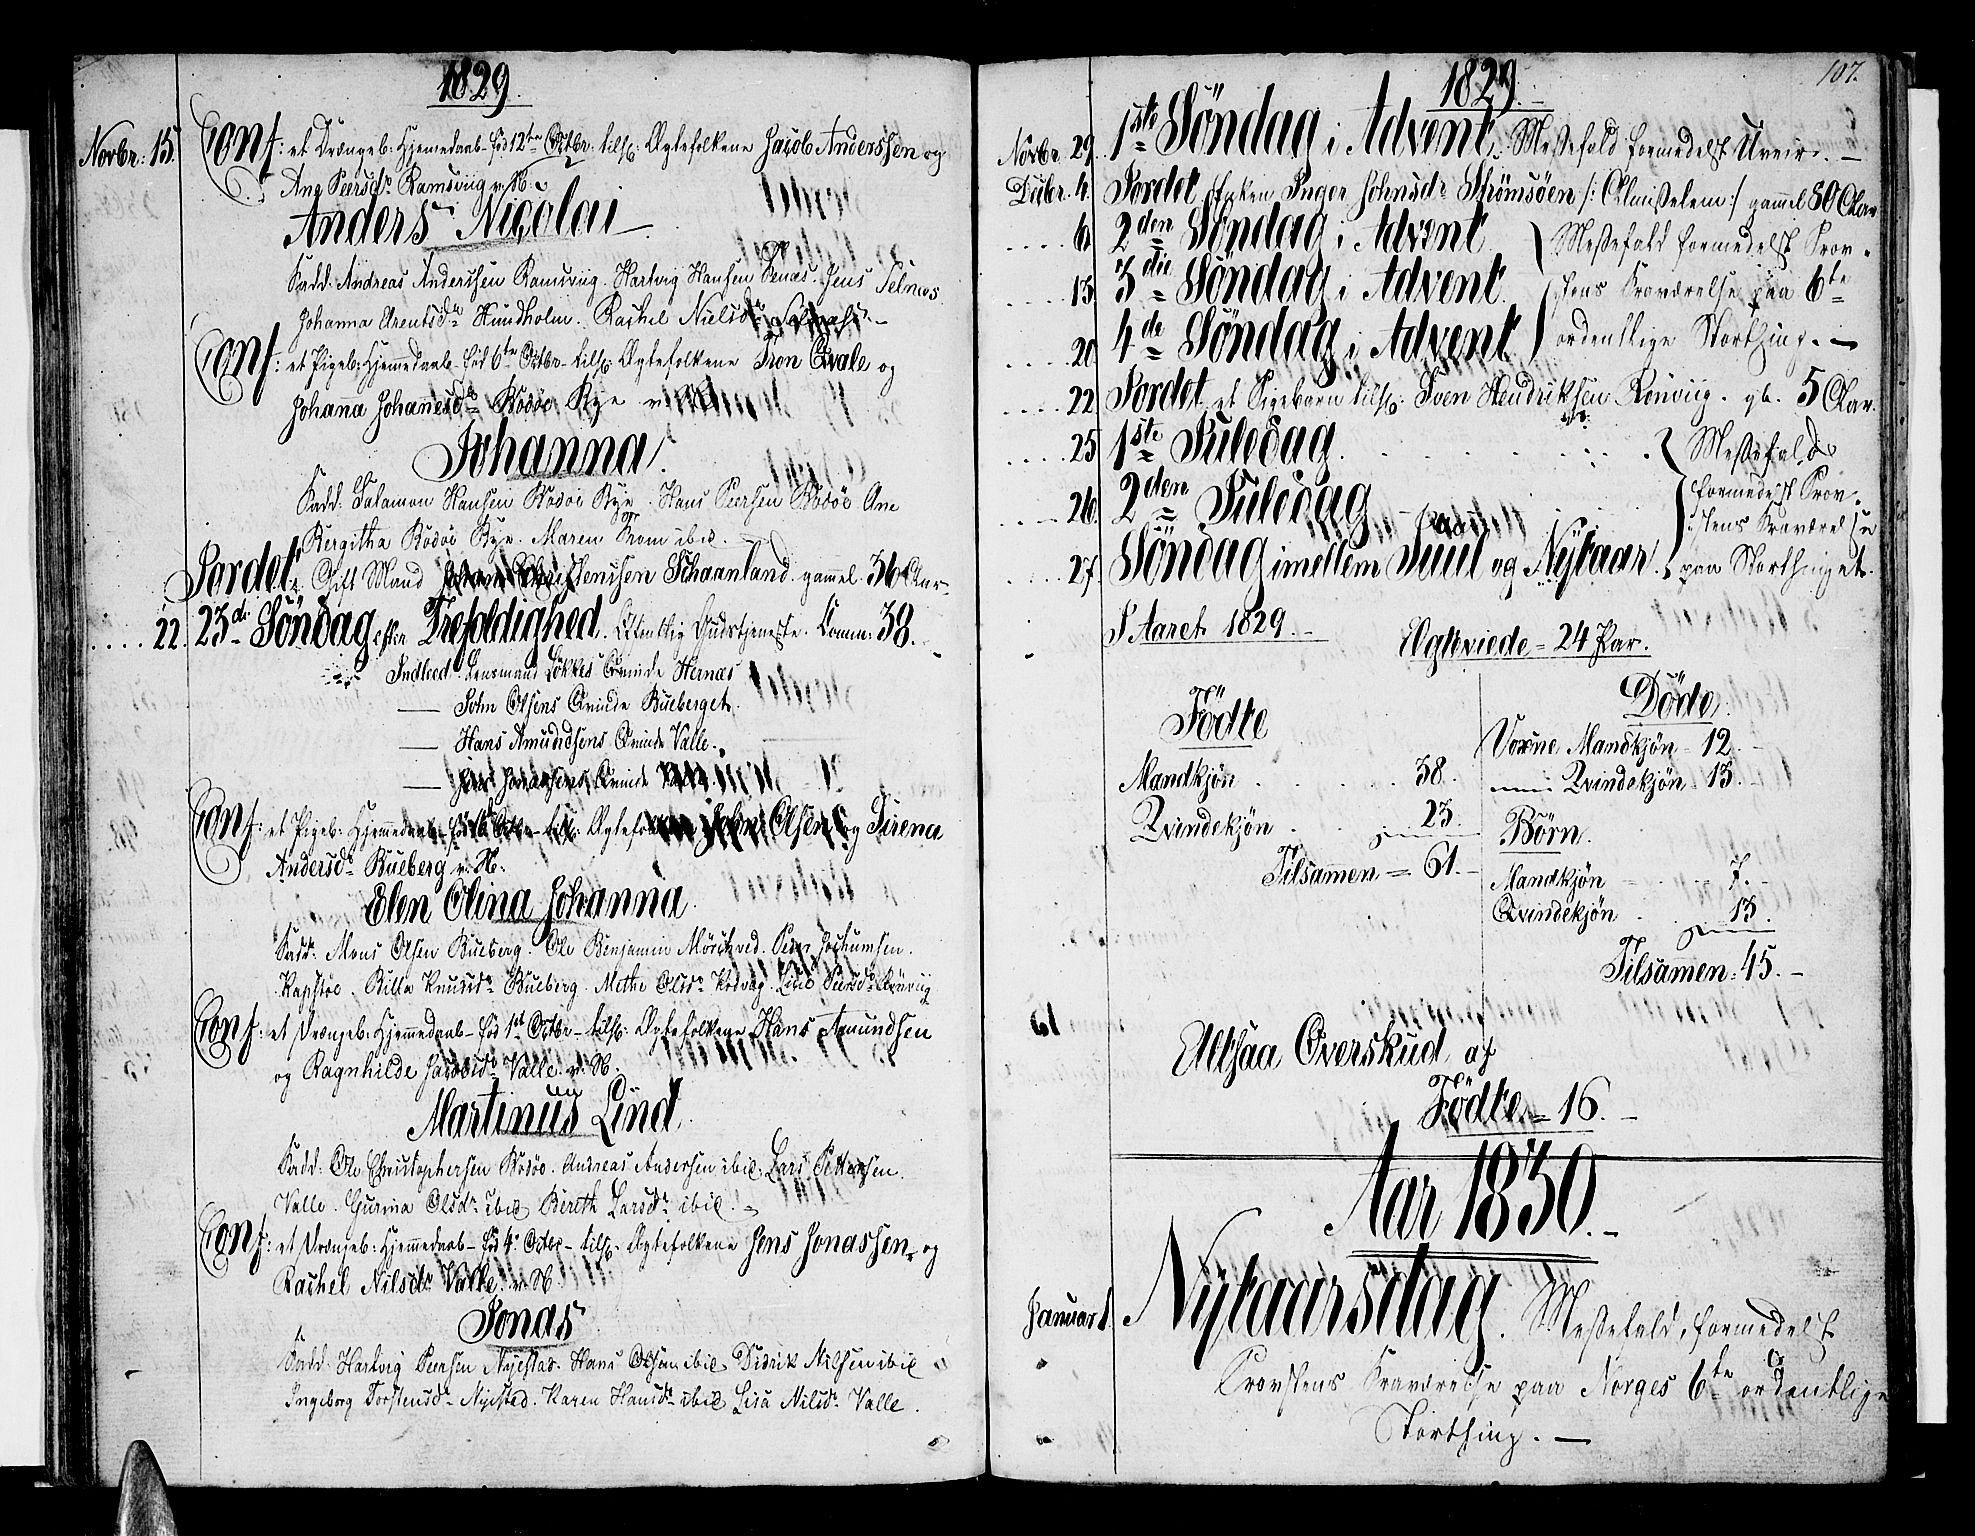 1829
Novbr: 15. Conf: et Drængeb: hjemedaab – fød 12te Octbr: tilh: Ægtefolkene Jacob Anderssen og
Ane Peersdr Ramsviig v: N:
Anders Nicolai
Fadd: Andreas Anderssen Ramsviig. Hartvig Hansen Jens Selnæs
Johanna Arentsdr Hundholm. Rachel Nielsdr
Conf: et Pigeb: hjemmedaab – fød 6te Octbr – tilh: Ægtefolkene Tron Qvale og
Johanna Johanesdr Bodöe Bye
Johanna
Fadd: Salamon Hansen Bodöe Bye. Hans Peersen Bodöe Ane
Bergitha Bodöe Bye. Maren From ibid.
Jordet Gift Mand Christenssen Schaanland gammel 36 Aar
22. 23de Söndag efter Trefoldighed. Offentlig Gudstjeneste. Comm: 38.
Indleed Lensmand Lökkes Qvinde Hernæs
— John Olsens Qvinde Bueberget
— Hans Amundsens Qvinde Valle.
— Jens Jonassens Qvinde
Conf: et Pigeb: hjemmedaab – Octbr – tilh: Olsen og Sirena
Andersdr Bueberg v. N:
Elen Olina Johanna
Fadd: Mons Olsen Bueberg. Ole Benjamin Mörchved. Peder Jochumsen
Kapstöe. Knudsdr Bueberg. Methe Olsdr
Conf: et Drængeb: hjemmedaab – fød 1st Octbr – tilh: Ægtefolkene Hans Amundsen
og Ragnhilde Jacobsdr Valle. v: N.
Martinus Lind
Fadd: Ole Christophersen Bodöe. Andreas Andersen ibid. Lars Pettersen
Valle. Gurina Olsdr ibid Bereth Larsdr ibid.
Conf: et Drængeb: hjemmedaab – fød 4de Octbr – tilh. Ægtefolkene Jens Jonassen og
Rachel Nilsdr Valle. v: N
Jonas
Fadd: Hartvig Peersen Nyestad. Hans Olsen ibid. Didrik Nilsen ibid
Ingeborg Torstensdr Nyested. Karen Hansdr ibid Lisa Nilsdr Valle.
107.
1829.
Novbr. 29. 1ste Söndag i Advent. Messefald formedelst Uveir. –
Decbr. 4. Jordet Enken Inger Johnsdr Strömsöen /: Almisselem :/ gammel 80 Aar
6. 2den Söndag i Advent Messefald formedelst Prov-
13. 3die Söndag i Advent stens Fraværelse paa 6te
20. 4de Söndag i Advent ordentlige Storthing. –
22. Jordet et Pigebarn tilh: Sven Hendriksen Rönviig. gl. 5 Aar.
25. 1ste Juledag. Messefald
26. 2den Juledag formedelst Prov-
stens Fraværelse
27. Söndag imellem Juul og Nytaar. paa Storthinget.
I Aaret 1829. Ægteviede = 24 Par.
Födte
Mandkjön 38.
Qvindekjön 23.
Tilsamen = 61.
Döde
Voxne Mandkjön = 12.
Qvindekjön = 13.
Börn
Mandkjön 7.
Qvindekjön 13.
Tilsamen: 45. –
Altsaa Overskud af
Födte = 16. –
Aar 1830. –
Januar 1. Nytaarsdag. Messefald, formedelst
Provstens Fraværelse paa Norges 6te ordentlige
Storthing. –